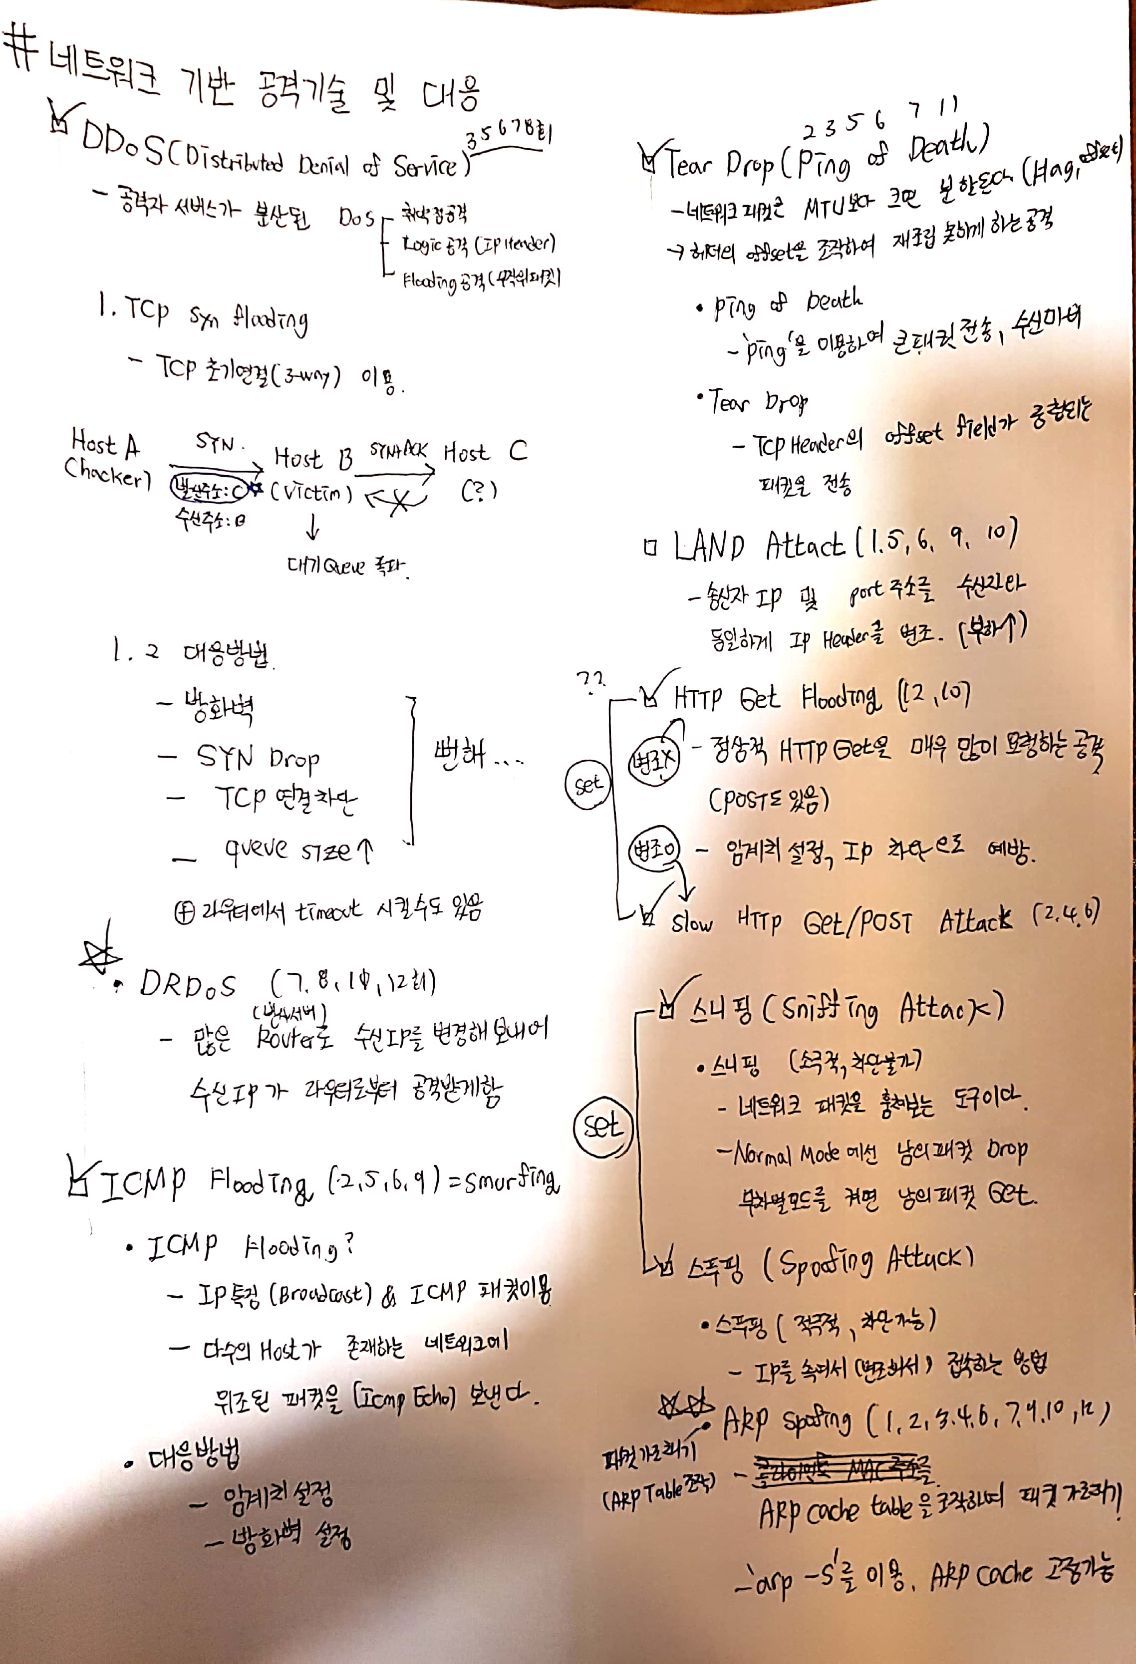 # 네트워크 기반 공격기술 및 대응
DDoS (Distributed Denial of Service) 3 5 6 7 8회
- 공격자 서버스가 분산된 DoS
취약점공격
Logic 공격 (IP Header)
Flooding 공격 (무작위패킷)
1. TCP Syn flooding
- TCP 초기연결(3-way) 이용.
Host A (hacker)
SYN.
발신주소: C
수신주소: B
Host B (Victim)
SYN+ACK
Host C (?)
대기Queue 폭파.
1. 2 대응방법.
- 방화벽
- SYN Drop
- TCP 연결차단
- queue size↑
뻔해...
⊕ 라우터에서 timeout 시킬수도 있음
• DRDoS (7. 8, 10, 12회)
(반사서버)
- 많은 Router로 수신IP를 변경해 보내어
수신IP가 라우터로부터 공격받게함
ICMP Flooding (2, 5, 6, 9) = Smurfing
• ICMP Flooding?
- IP특징(Broadcast) & ICMP 패킷이용
- 다수의 Host가 존재하는 네트워크에
위조된 패킷을 (Icmp Echo) 보낸다.
• 대응방법
- 임계치 설정
- 방화벽 설정
2 3 5 6 7 11
Tear Drop (Ping of Death)
- 네트워크 패킷은 MTU보다 크면 분할된다 (flag, offset)
→ 헤더의 offset을 조작하여 재조립 못하게 하는 공격
• Ping of Death
- 'Ping'을 이용하여 큰패킷 전송, 수신마비
• Tear Drop
- TCP Header의 offset field가 중첩되는
패킷을 전송
□ LAND Attact (1. 5, 6, 9, 10)
- 송신자 IP 및 port 주소를 수신자와
동일하게 IP Header를 변조. (부하↑)
??
set
HTTP Get Flooding (12, 10)
변조X
- 정상적 HTTP Get을 매우 많이 요청하는 공격
(POST도 있음)
변조O
- 임계치 설정, IP 차단으로 예방.
Slow HTTP Get/POST Attack (2. 4. 6)
set
스니핑 (Sniffing Attack)
• 스니핑 (소극적, 차단불가)
- 네트워크 패킷을 훔쳐보는 도구이다.
- Normal Mode에선 남의 패킷 Drop
무차별모드를 켜면 남의 패킷 Get.
스푸핑 (Spoofing Attack)
• 스푸핑 (적극적, 차단가능)
- IP를 속여서 (변조해서) 접속하는 방법
• ARP Spoofing (1, 2, 3. 4. 6, 7, 9, 10, 12)
패킷가로채기
(ARP Table 조작)
- 클라이언트 MAC 주소를
ARP cache table을 조작하여 패킷 가로채기
- 'arp -S'를 이용. ARP cache 고정가능